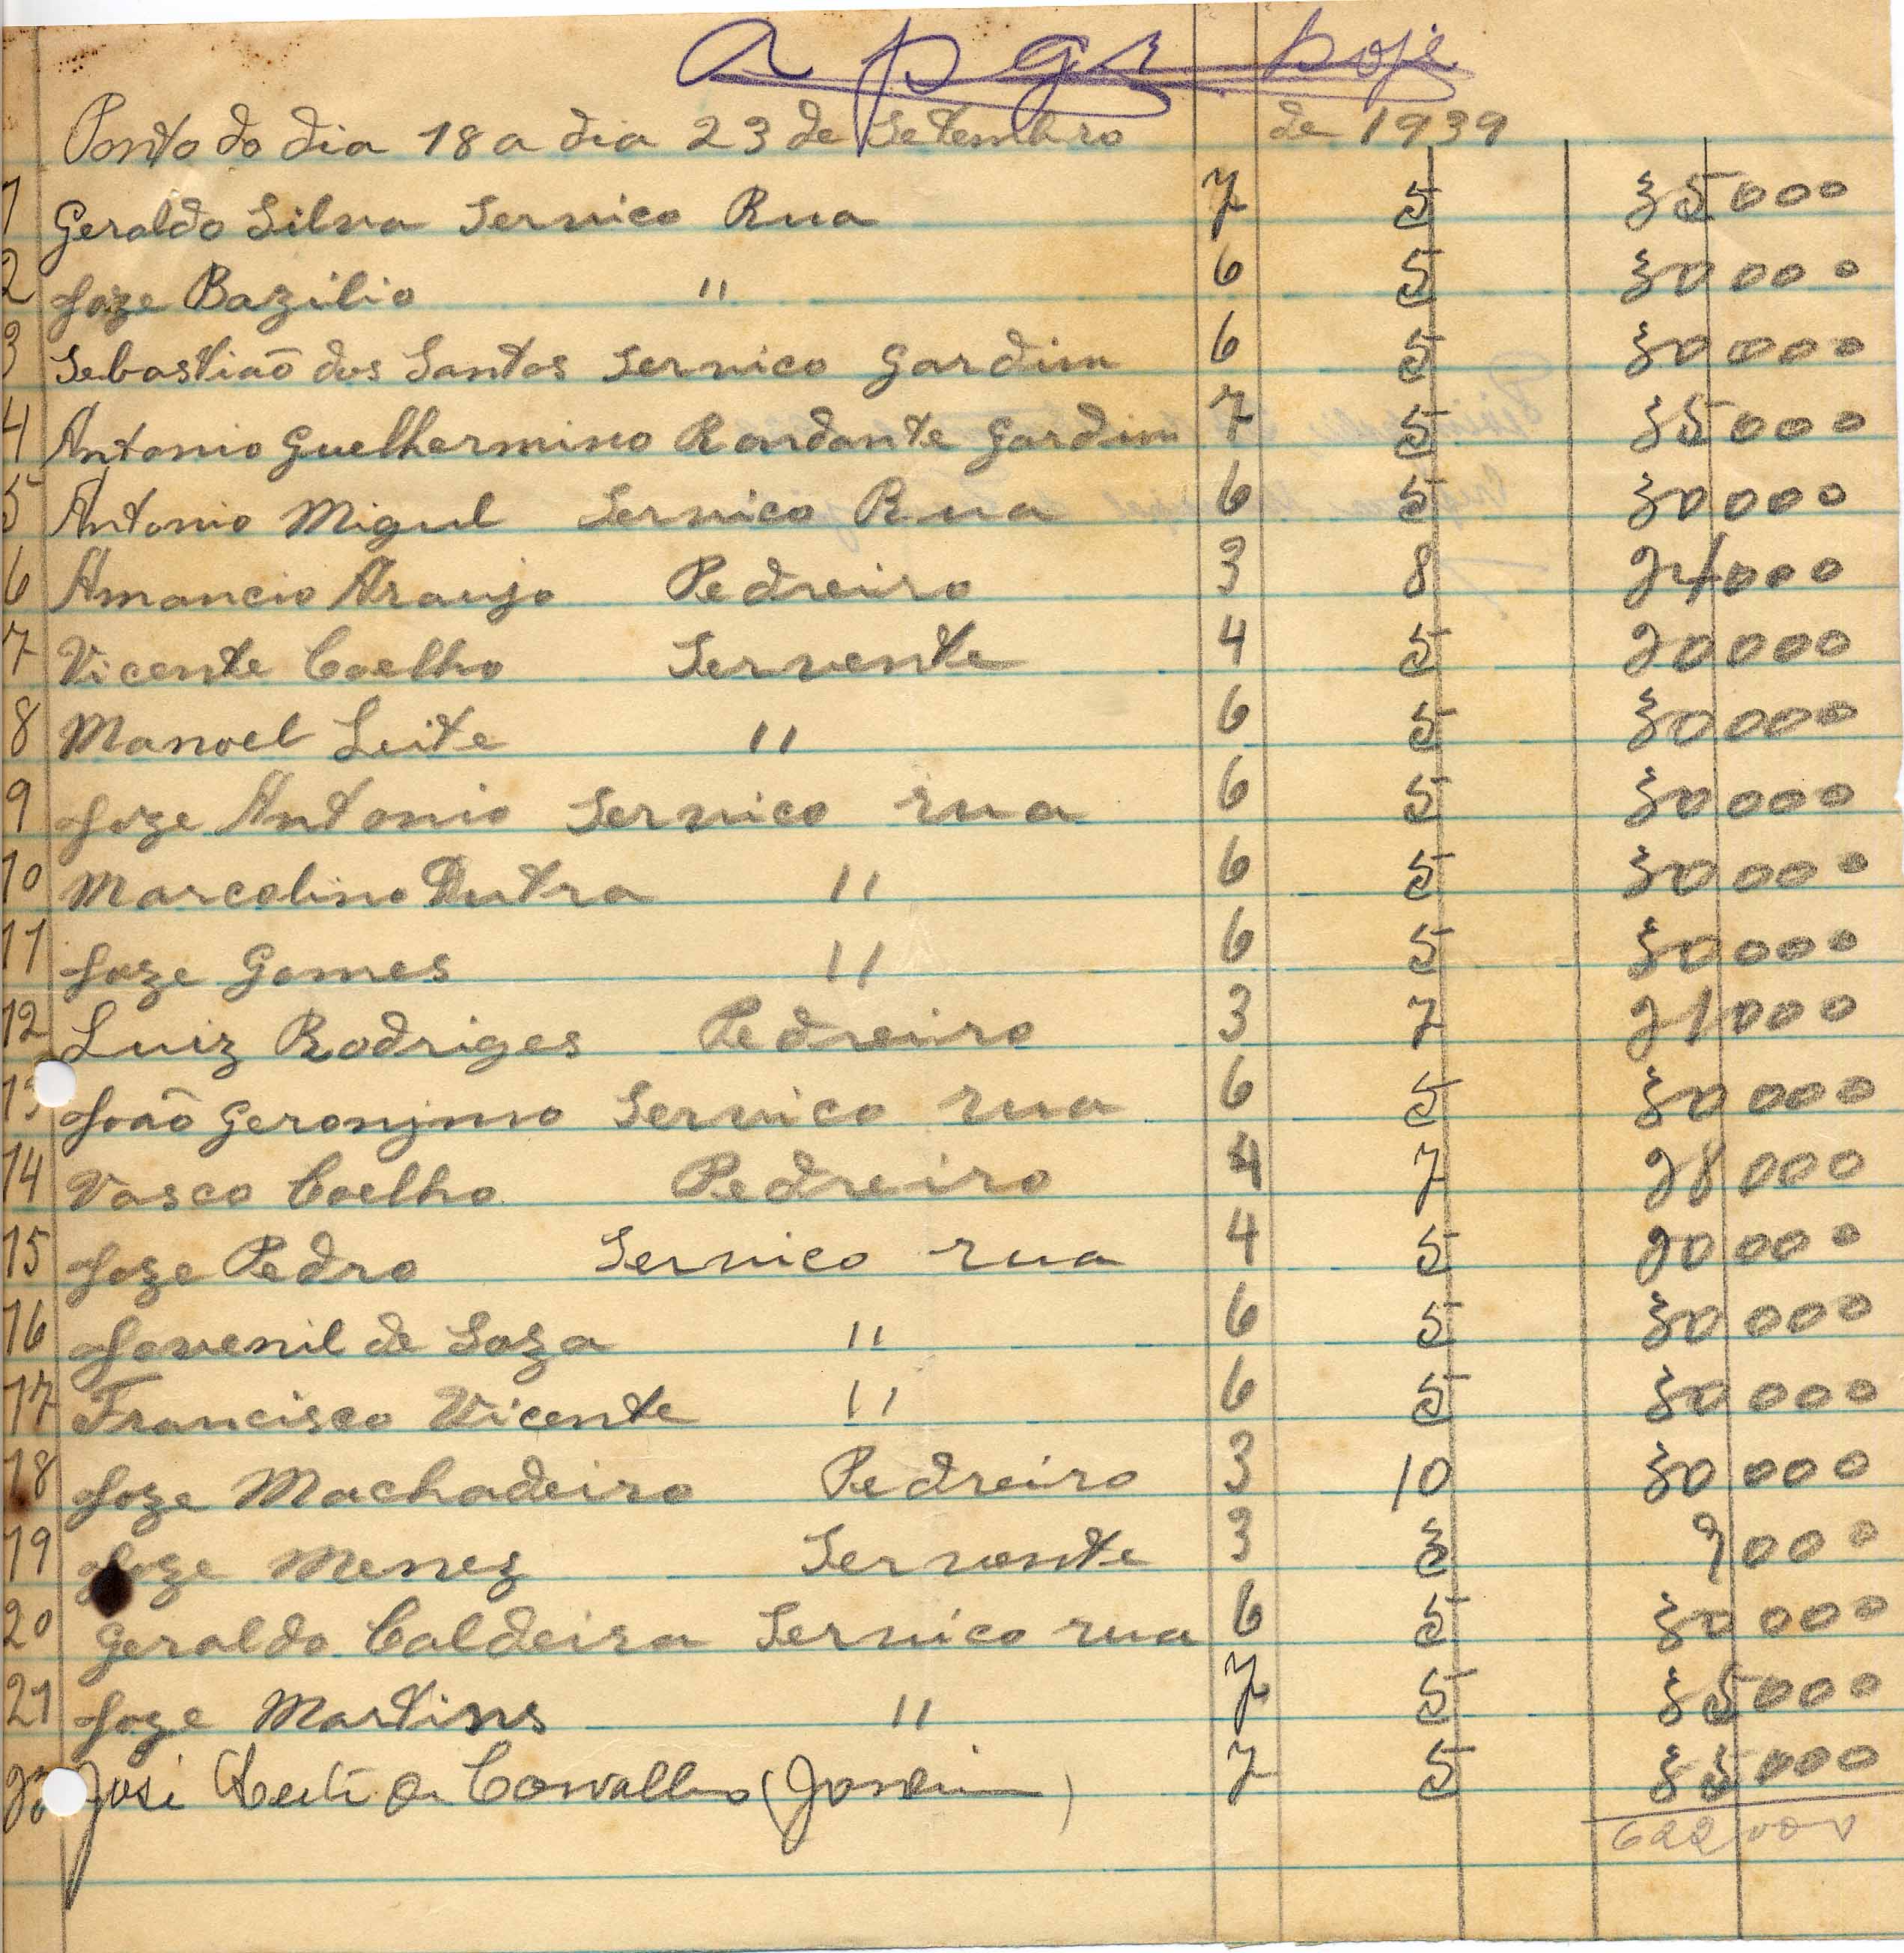 a pgr hoje
Ponto do dia 18 a dia 23 de Setembro de 1939
1 Geraldo Silva Servico Rua 7 5 35000
2 Joze Bazilio " 6 5 30000
3 Sebastiaõ dos Santos Servico Gardim 6 5 30000
4 Antonio Guelhermino Rondante Gardim 7 5 35000
5 Antonio Migul Servico Rua 6 5 30000
6 Amancio Araujo Pedreiro 3 8 24000
7 Vicente Coelho Servente 4 5 20000
8 Manoel Leite " 6 5 30000
9 Joze Antonio Servico rua 6 5 30000
10 Marcolino Dutra " 6 5 30000
11 Joze Gomes " 6 5 30000
12 Luiz Rodriges Pedreiro 3 7 21000
13 João Geronjmo Servico rua 6 5 30000
14 Vasco Coelho Pedreiro 4 7 28000
15 Joze Pedro Servico rua 4 5 20000
16 Jovenil de Soza " 6 5 30000
17 Francisco Vicente " 6 5 30000
18 Joze Machadeiro Pedreiro 3 10 30000
19 Joze Menez Servente 3 3 9000
20 Geraldo Caldeira Servico rua 6 5 30000
21 Joze Martins " 7 5 35000
José de Carvalho (Jardim) 7 5 35000
622000